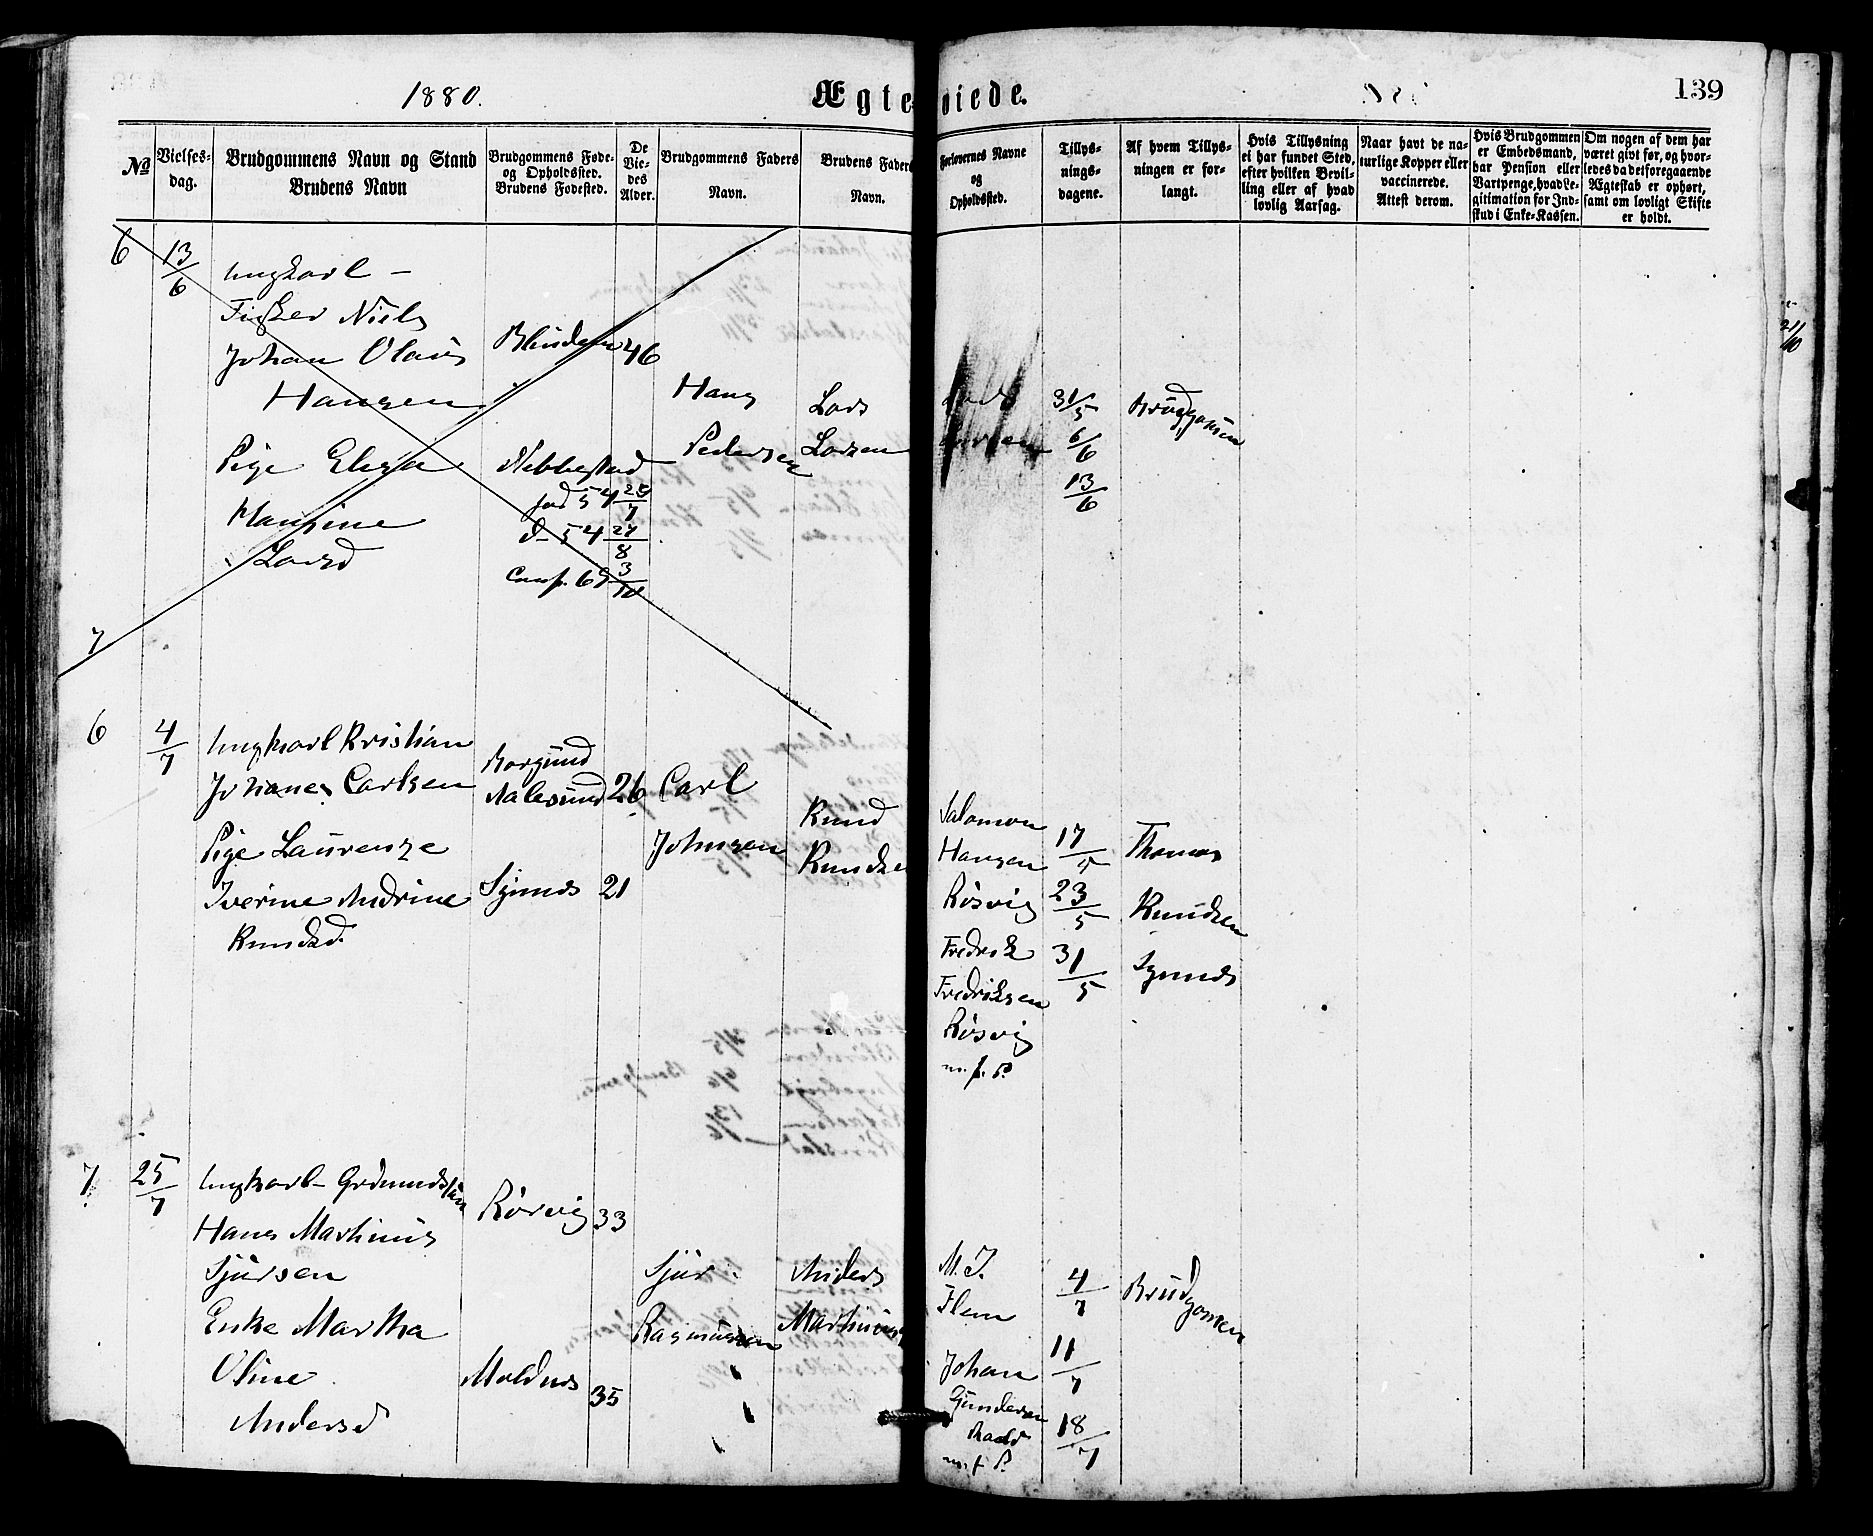 1880.
Ægteviede.
139
No
Vielses-
dag.
Brudgommens Navn og Stand
Brudens Navn
Brudgommens Føde-
og Opholdssted.
Brudens Fødested.
De
Vie-
des
Alder.
Brudgommens Faders
Navn.
Brudens Faders
Navn.
Forlovernes Navne
og
Opholdssted.
Tillys-
nings-
dagene.
Af hvem Tillys-
ningen er for-
langt.
Hvis Tillysning
ei har fundet Sted,
efter hvilken Bevil-
ling eller af hvad
lovlig Aarsag.
Naar havt de na-
turlige Kopper eller
vaccinerede.
Attest derom.
Hvis Brudgommen
er Embedsmand,
har Pension eller
Vartpenge, hvad Le-
gitimation for Ind-
skud i Enke-Kassen.
Om nogen af dem har
været givt før, og hvor-
ledes da det foregaaende
Ægteskab er ophørt,
samt om lovligt Skifte
er holdt.
6
13/6
Ungkarl -
Fisker Niels
Johan Olaus
Hansen
Blindem
46
Hans
Pedersen
Lars
Larsen
31/5
6/6
13/6
Brudgomen
Pige Elisa
Hansine
Larsd
Nebbestad
fød 54 25/7
d- 54 27/8
Conf. 69 3/10
7
6
4/7
Ungkarl Kristian
Johanes Carlsen
Borgund
Aalesund
26
Carl
Johnsen
Knud
Knudse
Pige Laurense
Iverine Andrine
Knudsd.
Synnes
21
Salomon
Hansen
Røsvig
Fredrik
Fredriksen
Røsvig
m. f. P.
17/5
23/5
31/5
Thomas
Knudsen
Synnes
7.
25/7
Ungkarl- Grdmands
Hans Martinus
Sjursen
Rørvig
33
Sjur
Rasmussen
Anders
Martinus
Enke Martha
Oline
Andersd
Moldnes
35
M. J.
Flem
Johan
Gundersen
m. f. P.
4/7
11/7
18/7
Brudgomen
21/10